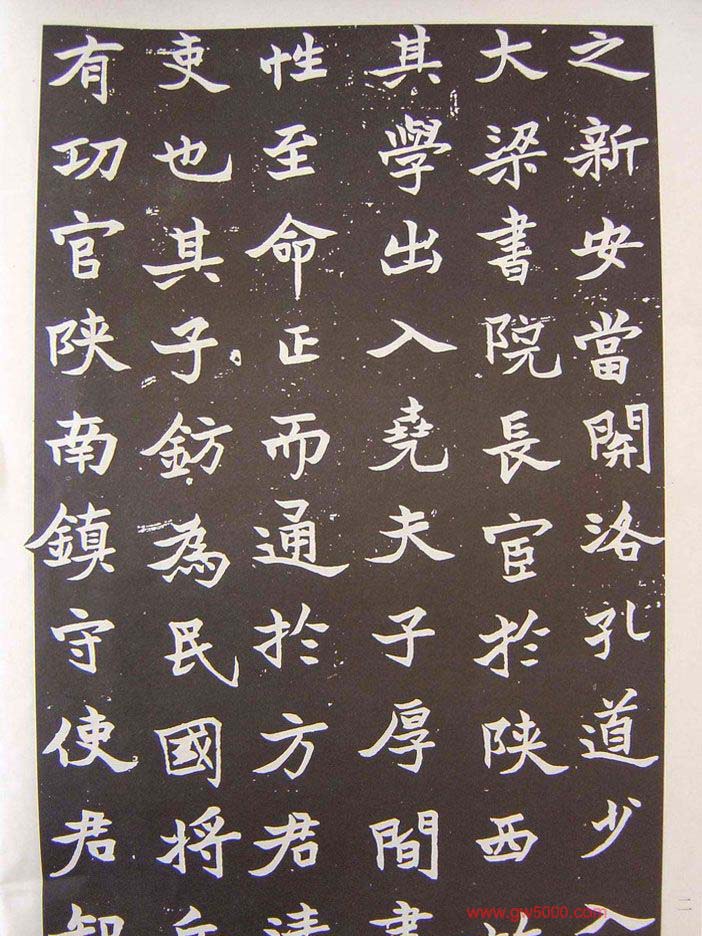 之新安當開洛孔道少
大梁書院長宦於陝西
其學出入堯夫子厚間
性至命正而通於方君
吏也其子鈁為民國將
有功官陝南鎮守使君
www.gw5000.com
二